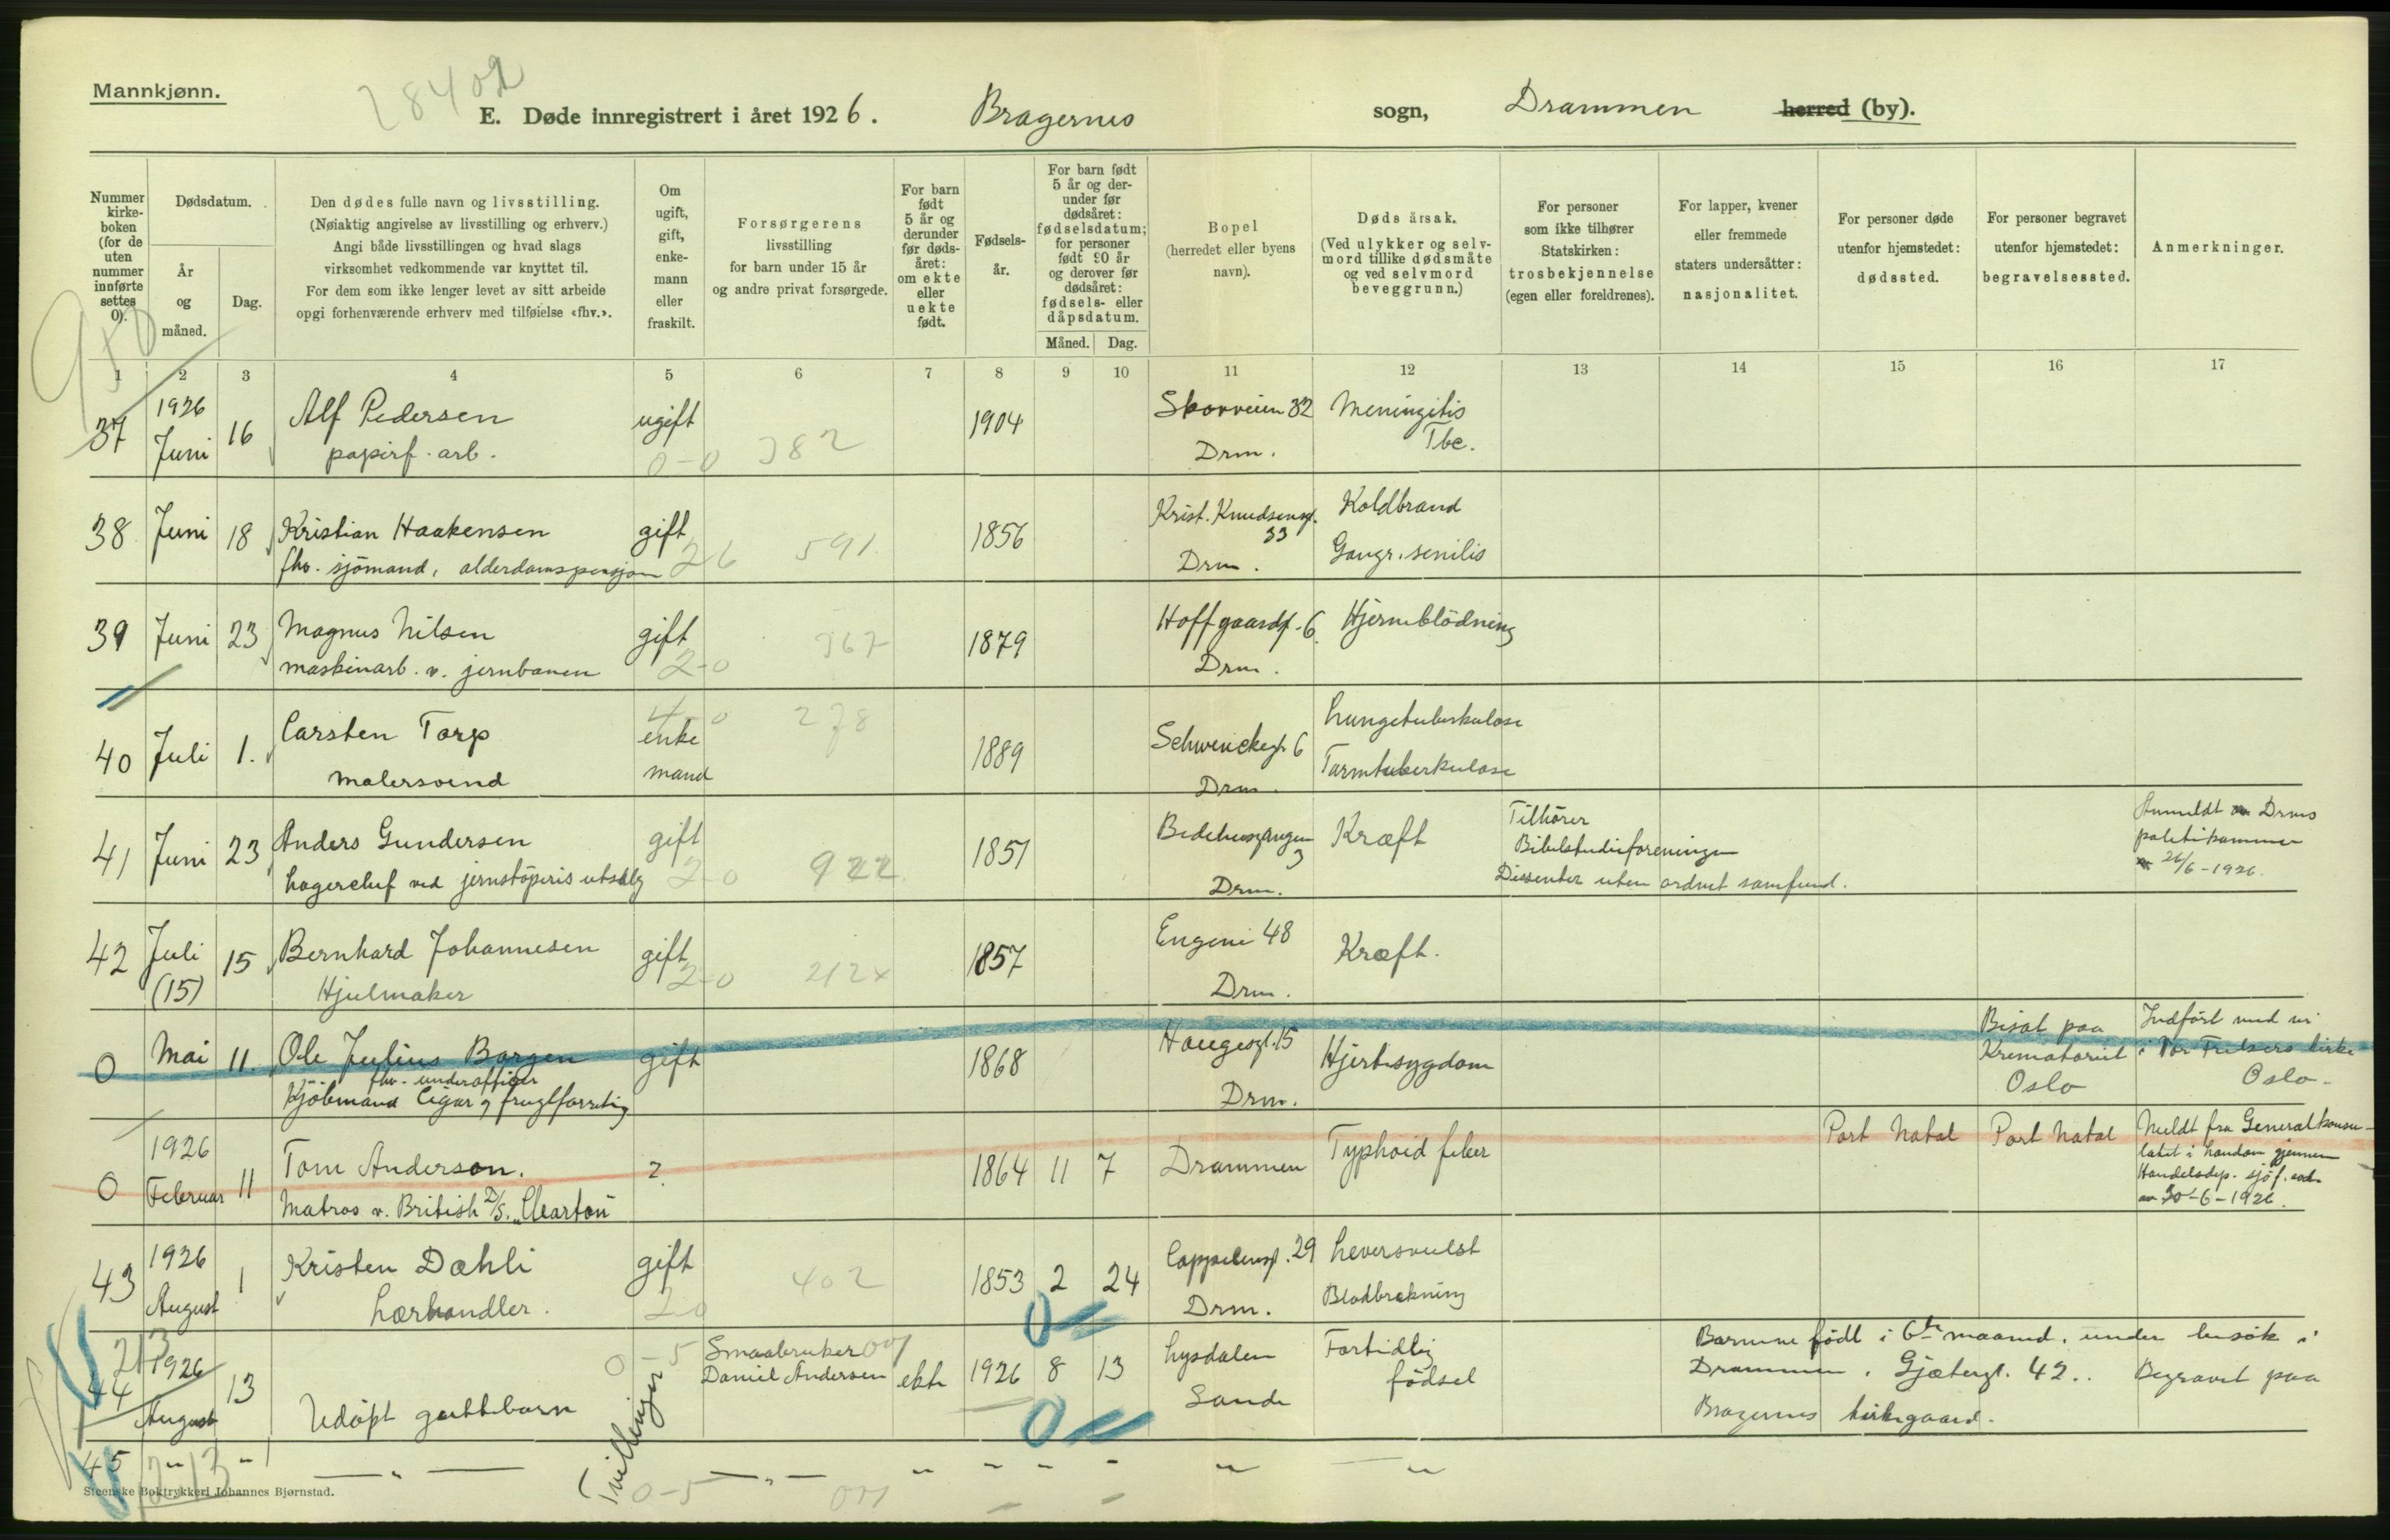 Mannkjønn.
28402
E. Døde innregistrert i året 1926. Bragernes sogn, Drammen herred (by).
Nummer kirke-boken (for de uten nummer innførte settes 0).
Dødsdatum.
År og måned.
Dag.
Den dødes fulle navn og livsstilling.
(Nøiaktig angivelse av livsstilling og erhverv.)
Angi både livsstillingen og hvad slags
virksomhet vedkommende var knyttet til.
For dem som ikke lenger levet av sitt arbeide
opgi forhenværende erhverv med tilføielse «fhv.».
Om ugift, gift, enke-mann eller fraskilt.
Forsørgerens
livsstilling
for barn under 15 år
og andre privat forsørgede.
For barn født 5 år og derunder før døds-året: om ekte eller uekte født.
Fødsels-år.
For barn født 5 år og der-under før dødsåret: fødselsdatum; for personer født 90 år og derover før dødsåret: fødsels- eller dåpsdatum.
Måned. Dag.
Bopel
(herredet eller byens
navn).
Døds årsak.
(Ved ulykker og selv-
mord tillike dødsmåte
og ved selvmord
beveggrunn.)
For personer
som ikke tilhører
Statskirken:
trosbekjennelse
(egen eller foreldrenes).
For lapper, kvener
eller fremmede
staters undersåtter:
nasjonalitet.
For personer døde
utenfor hjemstedet:
dødssted.
For personer begravet
utenfor hjemstedet:
begravelsessted.
Anmerkninger.
1 2 3 4 5 6 7 8 9 10 11 12 13 14 15 16 17
37 1926 Juni 16 Alf Pedersen ugift 1904 Skovveien 32 Meningitis
papirf. arb. 0-0 382 Drm. Tbc.
38 Juni 18 Kristian Haakensen gift 1856 Krist. Knudsensg. 33 Koldbrand
fhv. sjömand, alderdomspensjon 26 591 Drm. Gangr. senilis
39 Juni 23 Magnus Nilsen gift 1879 Hoffgaardsg. 6 Hjerneblödning
maskinarb. v. jernbanen 2-0 367 Drm.
40 Juli 1. Carsten Torp enke 4-0 278 1889 Schwenckegt 6 Lungetuberkulose
malersvend mand Drm. Tarmtuberkulose
41 Juni 23 Anders Gundersen gift 1851 Bedehusgangen 3 Kræft Tilhörer Anmeldt Drms
lagerchef ved jernstöperis utsalg 2-0 922 Drm. Bibelstudieforeningen politikammer
Dissenter uten ordnet samfund. 26/6-1926.
42 Juli (15) 15 Bernhard Johannesen gift 1857 Engene 48 Kræft.
Hjulmaker 2-0 212x Drm.
0 Mai 11. Ole Julius Borgen gift 1868 Haugesgt. 15 Hjertesygdom Bisat paa Indfört med nr
fhv. underofficer Krematoriet i Vor Frelsers kirke
Kjöbmand Cigar og frugtforretng Drm. Oslo Oslo.
0 1926 Februar 11 Tom Anderson. ? 1864 11 7 Drammen Typhoid feber Port Natal Port Natal Meldt fra Generalkonsu-
Matros v. British D/S. "Clearton" latet i London gjennem
Handelsdep. sjöf. avd.
av 30-6-1926.
43 1926 August 1 Kristen Dæhli gift 1853 2 24 Cappelensgt. 29 Leversvulst
Lærhandler. 2-0 402 Drm. Blodbrækning
44 1926 August 13 Udöpt guttebarn 0-5 Smaabruker ekte 1926 8 13 Lysdalen Fortidlig Barnene född i 6te maaned, under besök i
213 Daniel Andersen Sande födsel Drammen, Gjætergt. 42. Begravet paa
Bragernes kirkegaard.
Tvillinger
45 " " — " — — " — " " " " " "
213 0-5
Steenske Boktrykkeri Johannes Bjørnstad.